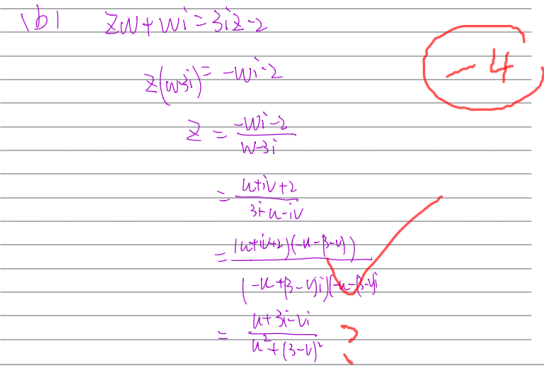 (b) zw+wi=3iz-2
-4
z(w-3i)=-wi-2
z = \frac{-wi-2}{w-3i}
= \frac{u+iv+2}{3i-u-iv}
= \frac{(u+iv+2)(-u-(3-v))}{(-u+(3-v)i)(-u-(3-v)i}
= \frac{u+3i-vi}{u^2+(3-v)^2} ?